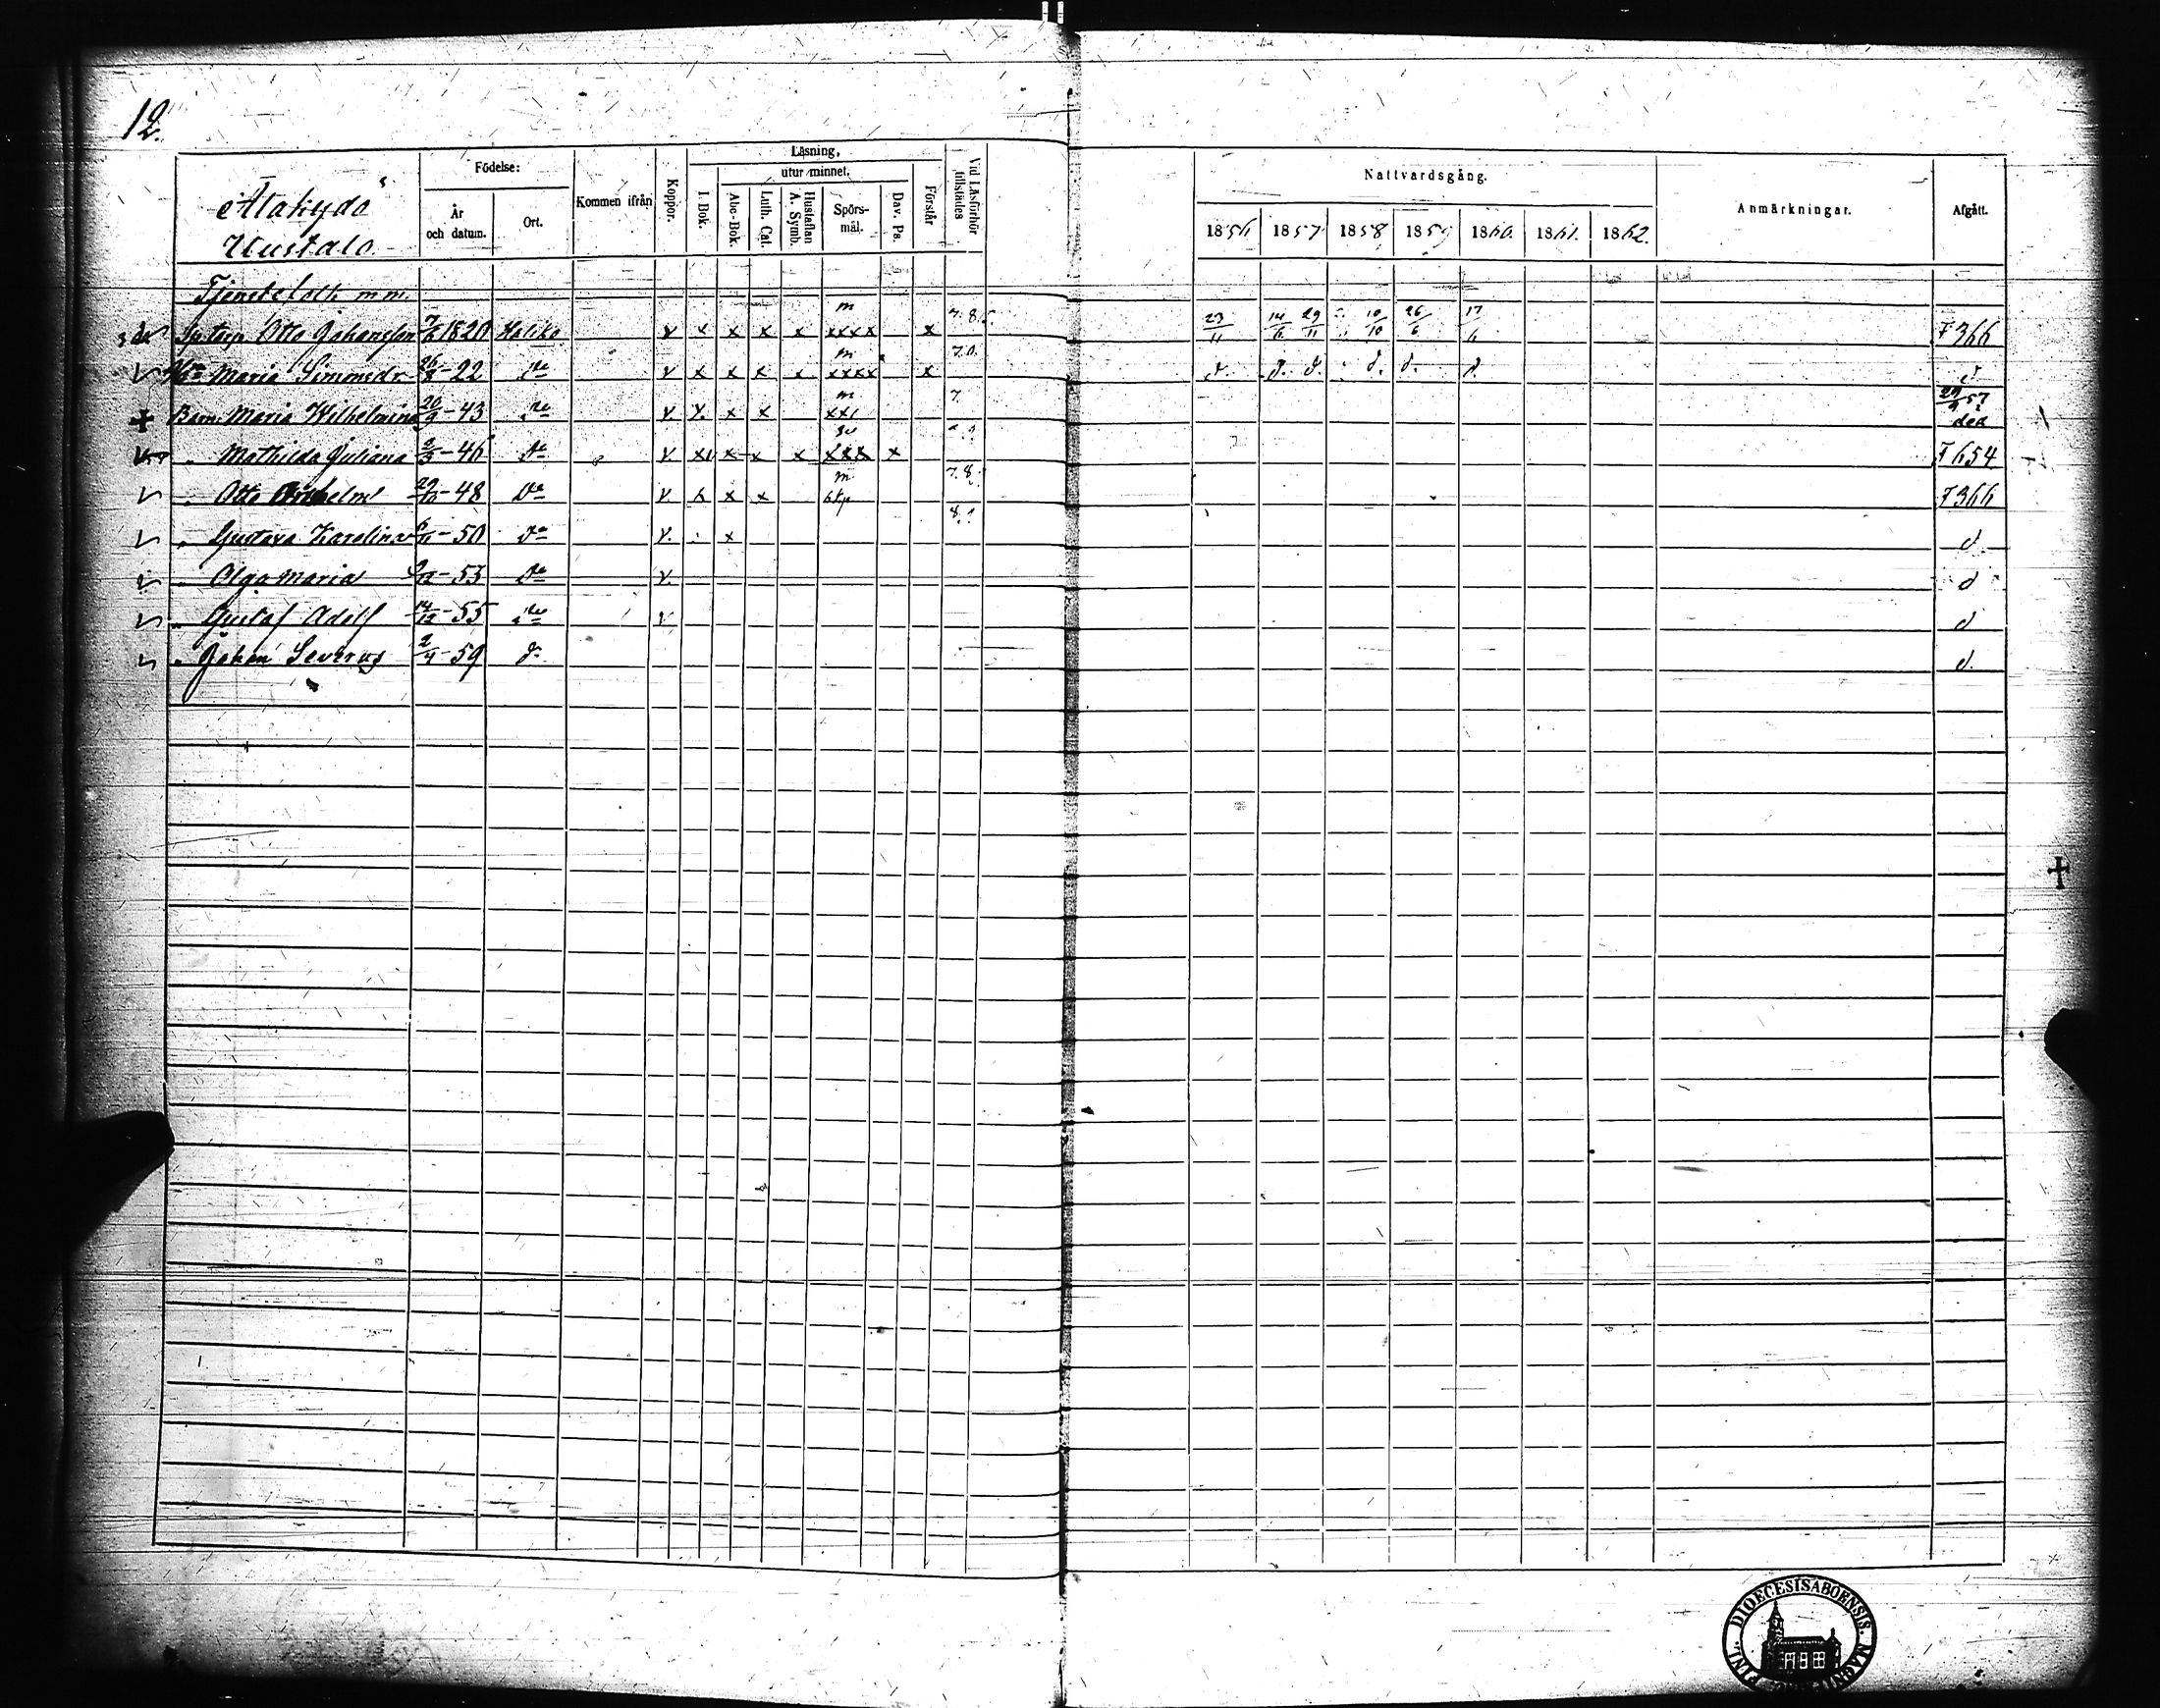 12.
Alakydö
Uustalo
Födelse:
År och datum.
Ort.
Kommen ifrån
Koppor.
Läsning,
I. Bok.
utur minnet.
Abc-Bok.
Luth. Cat.
Hustaflan A. Symb.
Spörs-mål.
Dav. Ps.
Förstår
Vid Läsförhör tillstädes
Nattvardsgång.
1856 1857 1858 1859 1860. 1861. 1862.
Anmärkningar.
Afgått.
Tjenstefolk m m.
Otto Johansson 7/6 1820 Haliko v x x x x m xxxx x 7.8. 23/11 14/6 29/11 10/10 26/6 17/6 F 366
Maria Simonsdr 26/8 - 22 De v x x x x m xxxx x d. d. d. d. d. d. d
+ Barn Maria Wilhelmina 20/9 - 43 De v x x m xxx 7 29/9 57 död
" Mathilda Juliana 2/3 - 46 De v x x x xxx x F 654
" Otto Wilhelm 29/10 - 48 De v x x x m 7.8. F 366
" Gustava Karolina 6/11 - 50 De v. x d
" Olga Maria - 53 De v. d
" Gustaf Adolf 14/12 - 55 De v d
" Johan Severus 2/4 - 59 d: d.
+
DIOECESIS ABOENSIS. MAGNI